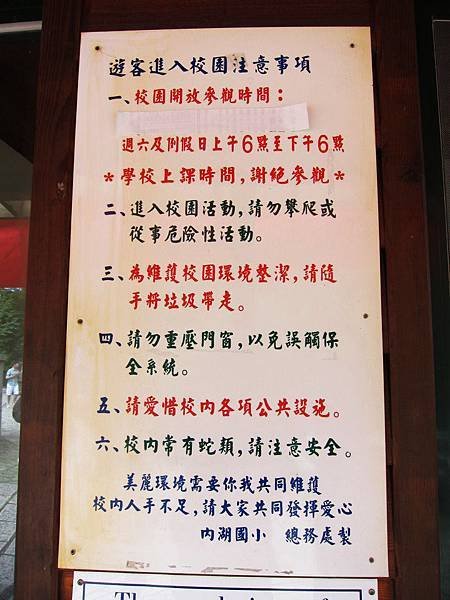 遊客進入校園注意事項
一、校園開放參觀時間：
週六及例假日上午6點至下午6點
*學校上課時間，謝絕參觀*
二、進入校園活動，請勿攀爬或
從事危險性活動。
三、為維護校園環境整潔，請隨
手將垃圾帶走。
四、請勿重壓門窗，以免誤觸保
全系統。
五、請愛惜校內各項公共設施。
六、校內常有蛇類，請注意安全。
美麗環境需要你我共同維護
校內人手不足，請大家共同發揮愛心
內湖國小 總務處製